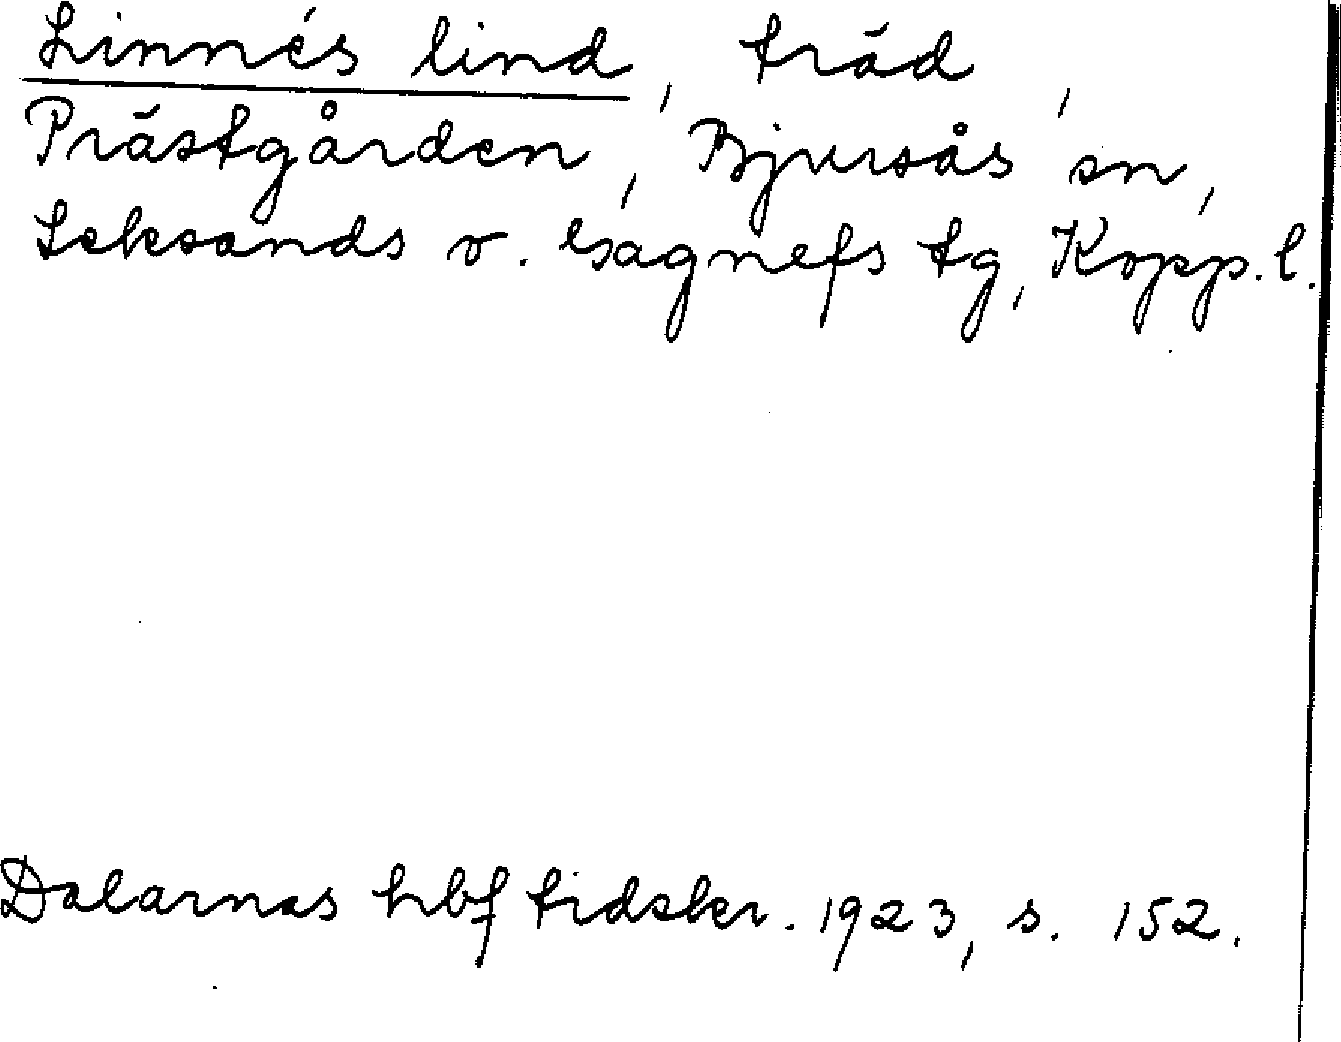 Linnés lind, träd,
Prästgården, Bjursås sn,
Leksands o. Gagnefs tg, Kopp. l.
Dalarnas hbf tidskr. 1923, s. 152.